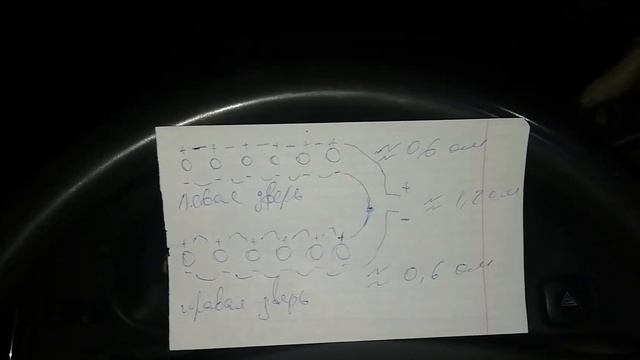 + - + - + - + - + - + ≈ 0,6 ом
O O O O O O
- - - - - -
левая дверь
+
≈ 1,2 ом
-
+ + + + + +
O O O O O O
- - - - - -
≈ 0,6 ом
правая дверь